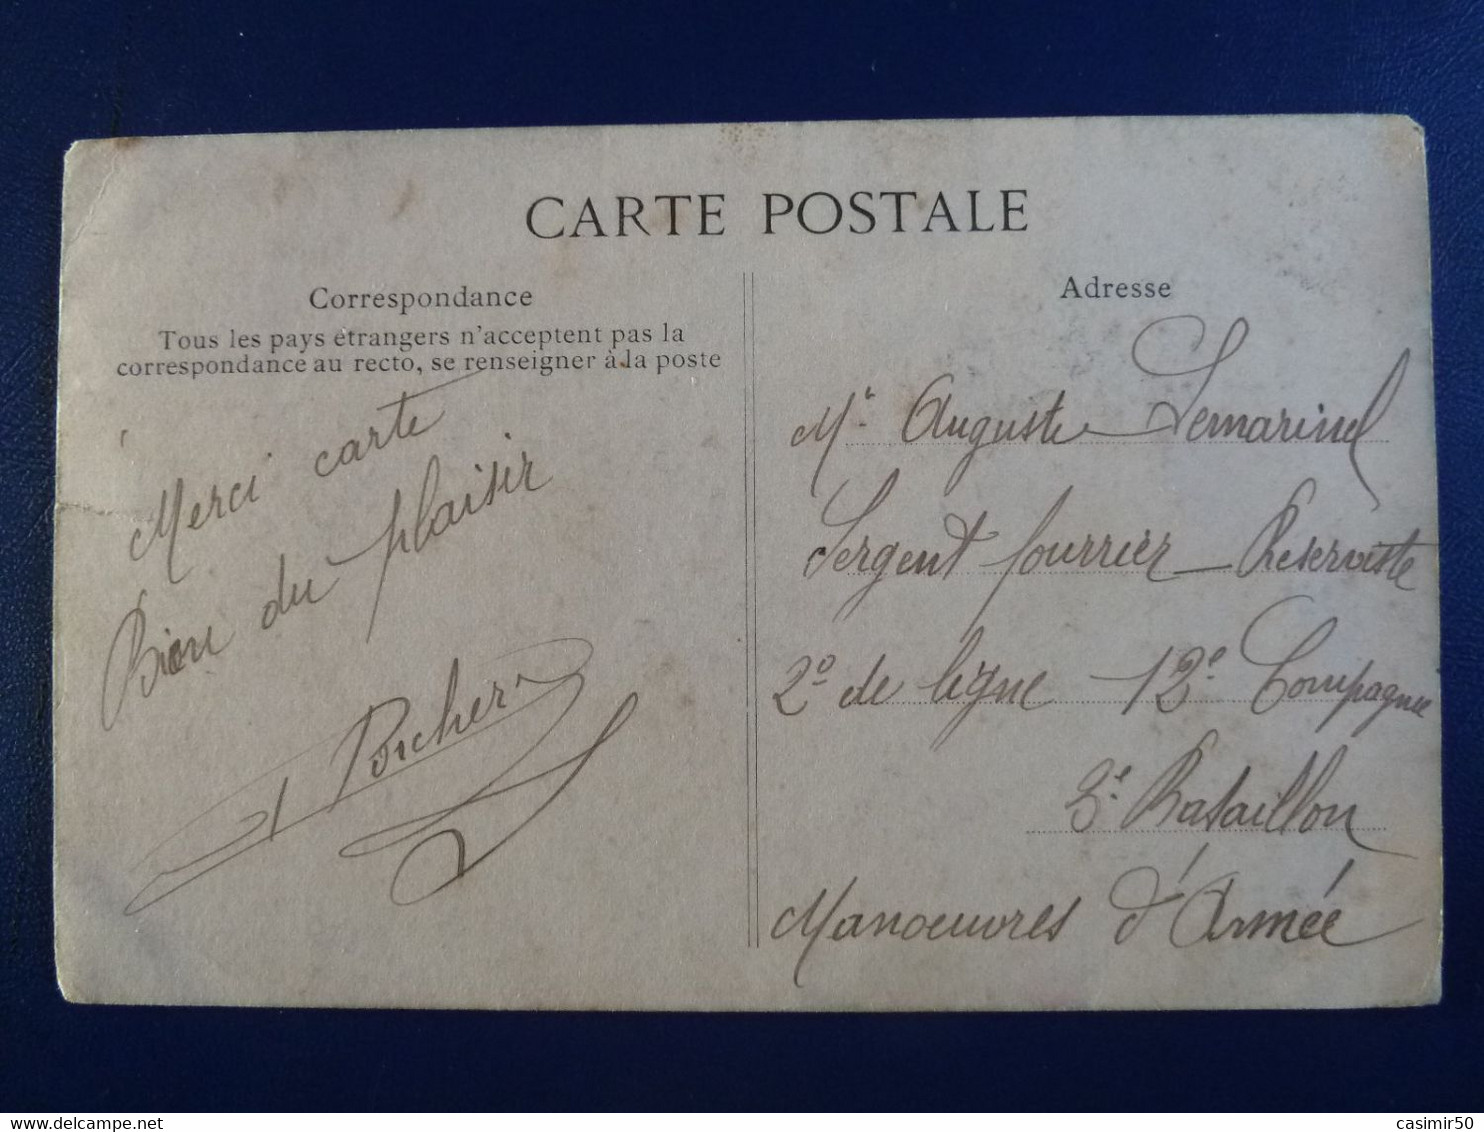 CARTE POSTALE
Correspondance
Tous les pays étrangers n'acceptent pas la
correspondance au recto, se renseigner à la poste
Merci carte
Bien du plaisir
Porcher
Adresse
Mr Auguste Lemarinel
Sergent fourrier Réserviste
2e de ligne 12e Compagnie
3e Bataillon
Manoeuvres d'Armée
casimir50